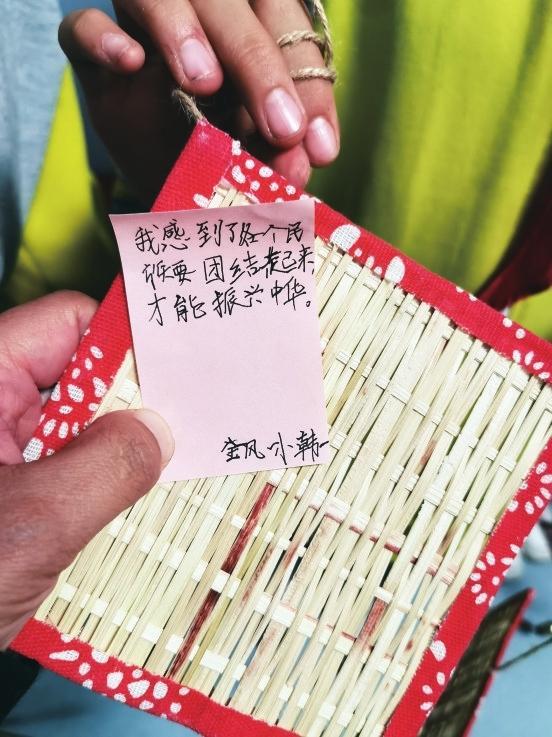 我感到了各个民
族要团结起来,
才能振兴中华。
金风小韩